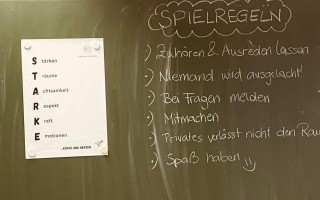 S tärken
T räume
A chtsamkeit
R espekt
K raft
E motionen
SPIELREGELN
Zuhören & Ausreden lassen
Niemand wird ausgelacht!
Bei Fragen melden
Mitmachen
Privates verlässt nicht den Rau
Spaß haben